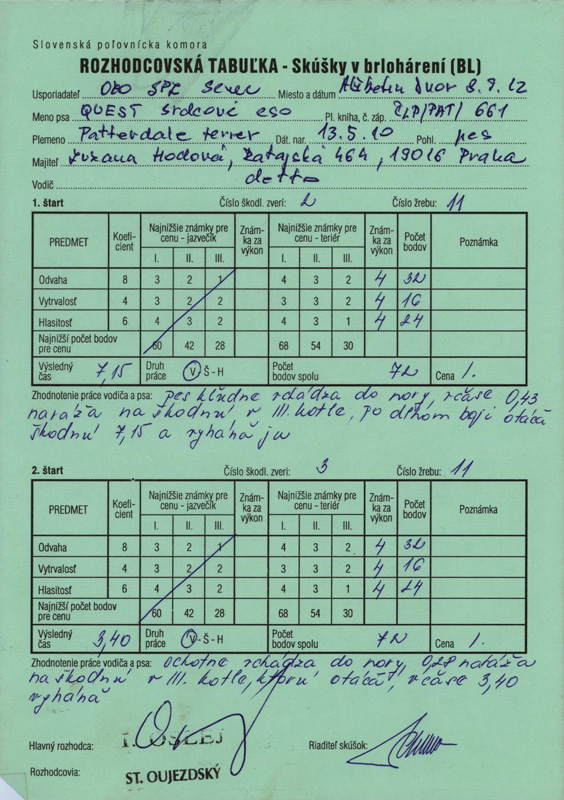 Slovenská poľovnícka komora
ROZHODCOVSKÁ TABUĽKA - Skúšky v brlohárení (BL)
Usporiadateľ OkO SPZ Senec Miesto a dátum Dvor 8.9.12
Meno psa QUEST Srdcové eso Pl. kniha, č. záp. ČLP/PAT/ 661
Plemeno Patterdale terrer Dát. nar. 13.5.10 Pohl. pes
Majiteľ Zuzana Hodová, Zatajská 464, 19016 Praha
Vodič detto
1. štart Číslo škodl. zveri: 2 Číslo žrebu: 11
PREDMET Koeficient Najnižšie známky pre cenu - jazvečík Známka za výkon Najnižšie známky pre cenu - teriér Známka za výkon Počet bodov Poznámka
I. II. III. I. II. III.
Odvaha 8 3 2 1 4 3 2 4 32
Vytrvalosť 4 3 2 2 3 3 2 4 16
Hlasitosť 6 4 3 2 4 3 1 4 24
Najnižší počet bodov pre cenu 60 42 28 68 54 30
Výsledný čas 7,15 Druh práce V - Š - H Počet bodov spolu 72 Cena I.
Zhodnotenie práce vodiča a psa: pes kľudne vchádza do nory, v čase 0,43
naráža na škodnú v III. kotle, po dlhom boji otáča
škodnú 7,15 a vyháňa ju
2. štart Číslo škodl. zveri: 3 Číslo žrebu: 11
PREDMET Koeficient Najnižšie známky pre cenu - jazvečík Známka za výkon Najnižšie známky pre cenu - teriér Známka za výkon Počet bodov Poznámka
I. II. III. I. II. III.
Odvaha 8 3 2 1 4 3 2 4 32
Vytrvalosť 4 3 2 2 3 3 2 4 16
Hlasitosť 6 4 3 2 4 3 1 4 24
Najnižší počet bodov pre cenu 60 42 28 68 54 30
Výsledný čas 3,40 Druh práce V - Š - H Počet bodov spolu 72 Cena I.
Zhodnotenie práce vodiča a psa: ochotne vchádza do nory, 0,28 naráža
na škodnú v III. kotle, ktorú otáča, v čase 3,40
vyháňa
Hlavný rozhodca: Riaditeľ skúšok:
Rozhodcovia: ST. OUJEZDSKÝ